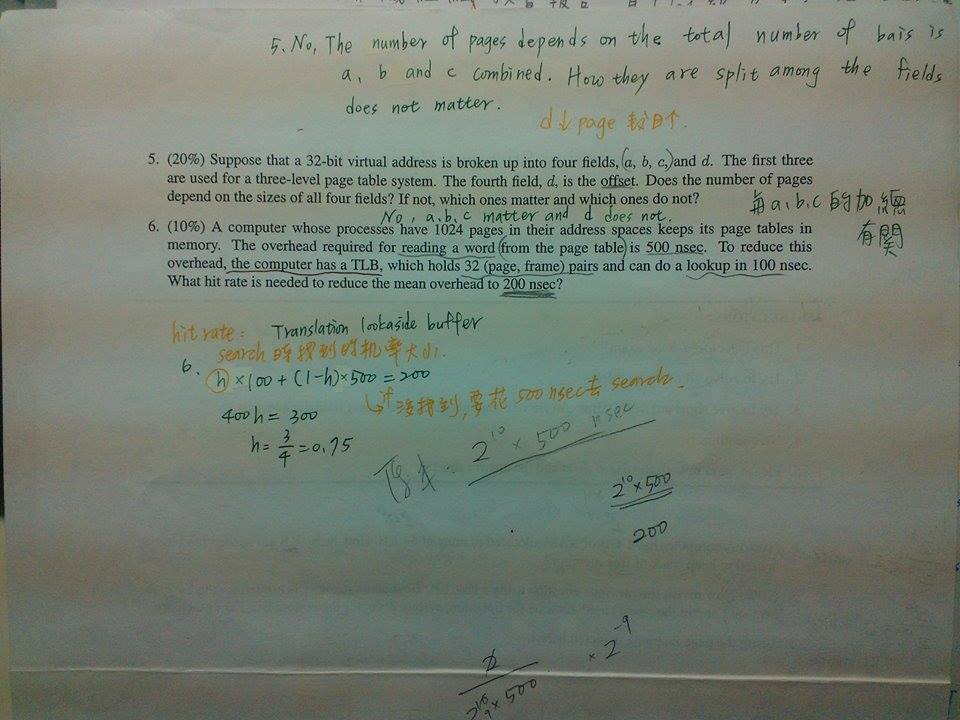 5. No, The number of pages depends on the total number of bais is
a, b and c combined. How they are split among the fields
does not matter.
d↓ page 較多个.
5. (20%) Suppose that a 32-bit virtual address is broken up into four fields, (a, b, c,) and d. The first three
are used for a three-level page table system. The fourth field, d, is the offset. Does the number of pages
depend on the sizes of all four fields? If not, which ones matter and which ones do not?
No, a, b, c matter and d does not.
a, b, c 的加總
有關
6. (10%) A computer whose processes have 1024 pages in their address spaces keeps its page tables in
memory. The overhead required for reading a word (from the page table) is 500 nsec. To reduce this
overhead, the computer has a TLB, which holds 32 (page, frame) pairs and can do a lookup in 100 nsec.
What hit rate is needed to reduce the mean overhead to 200 nsec?
hit rate: Translation lookaside buffer
search 時找到的机率大小.
6. h × 100 + (1-h) × 500 = 200
↳ if 沒找到, 要花 500 nsec 去 search.
400h = 300
h = 3/4 = 0.75
2^10 × 500 nsec
2^10 × 500
200
× 2^-9
× 500